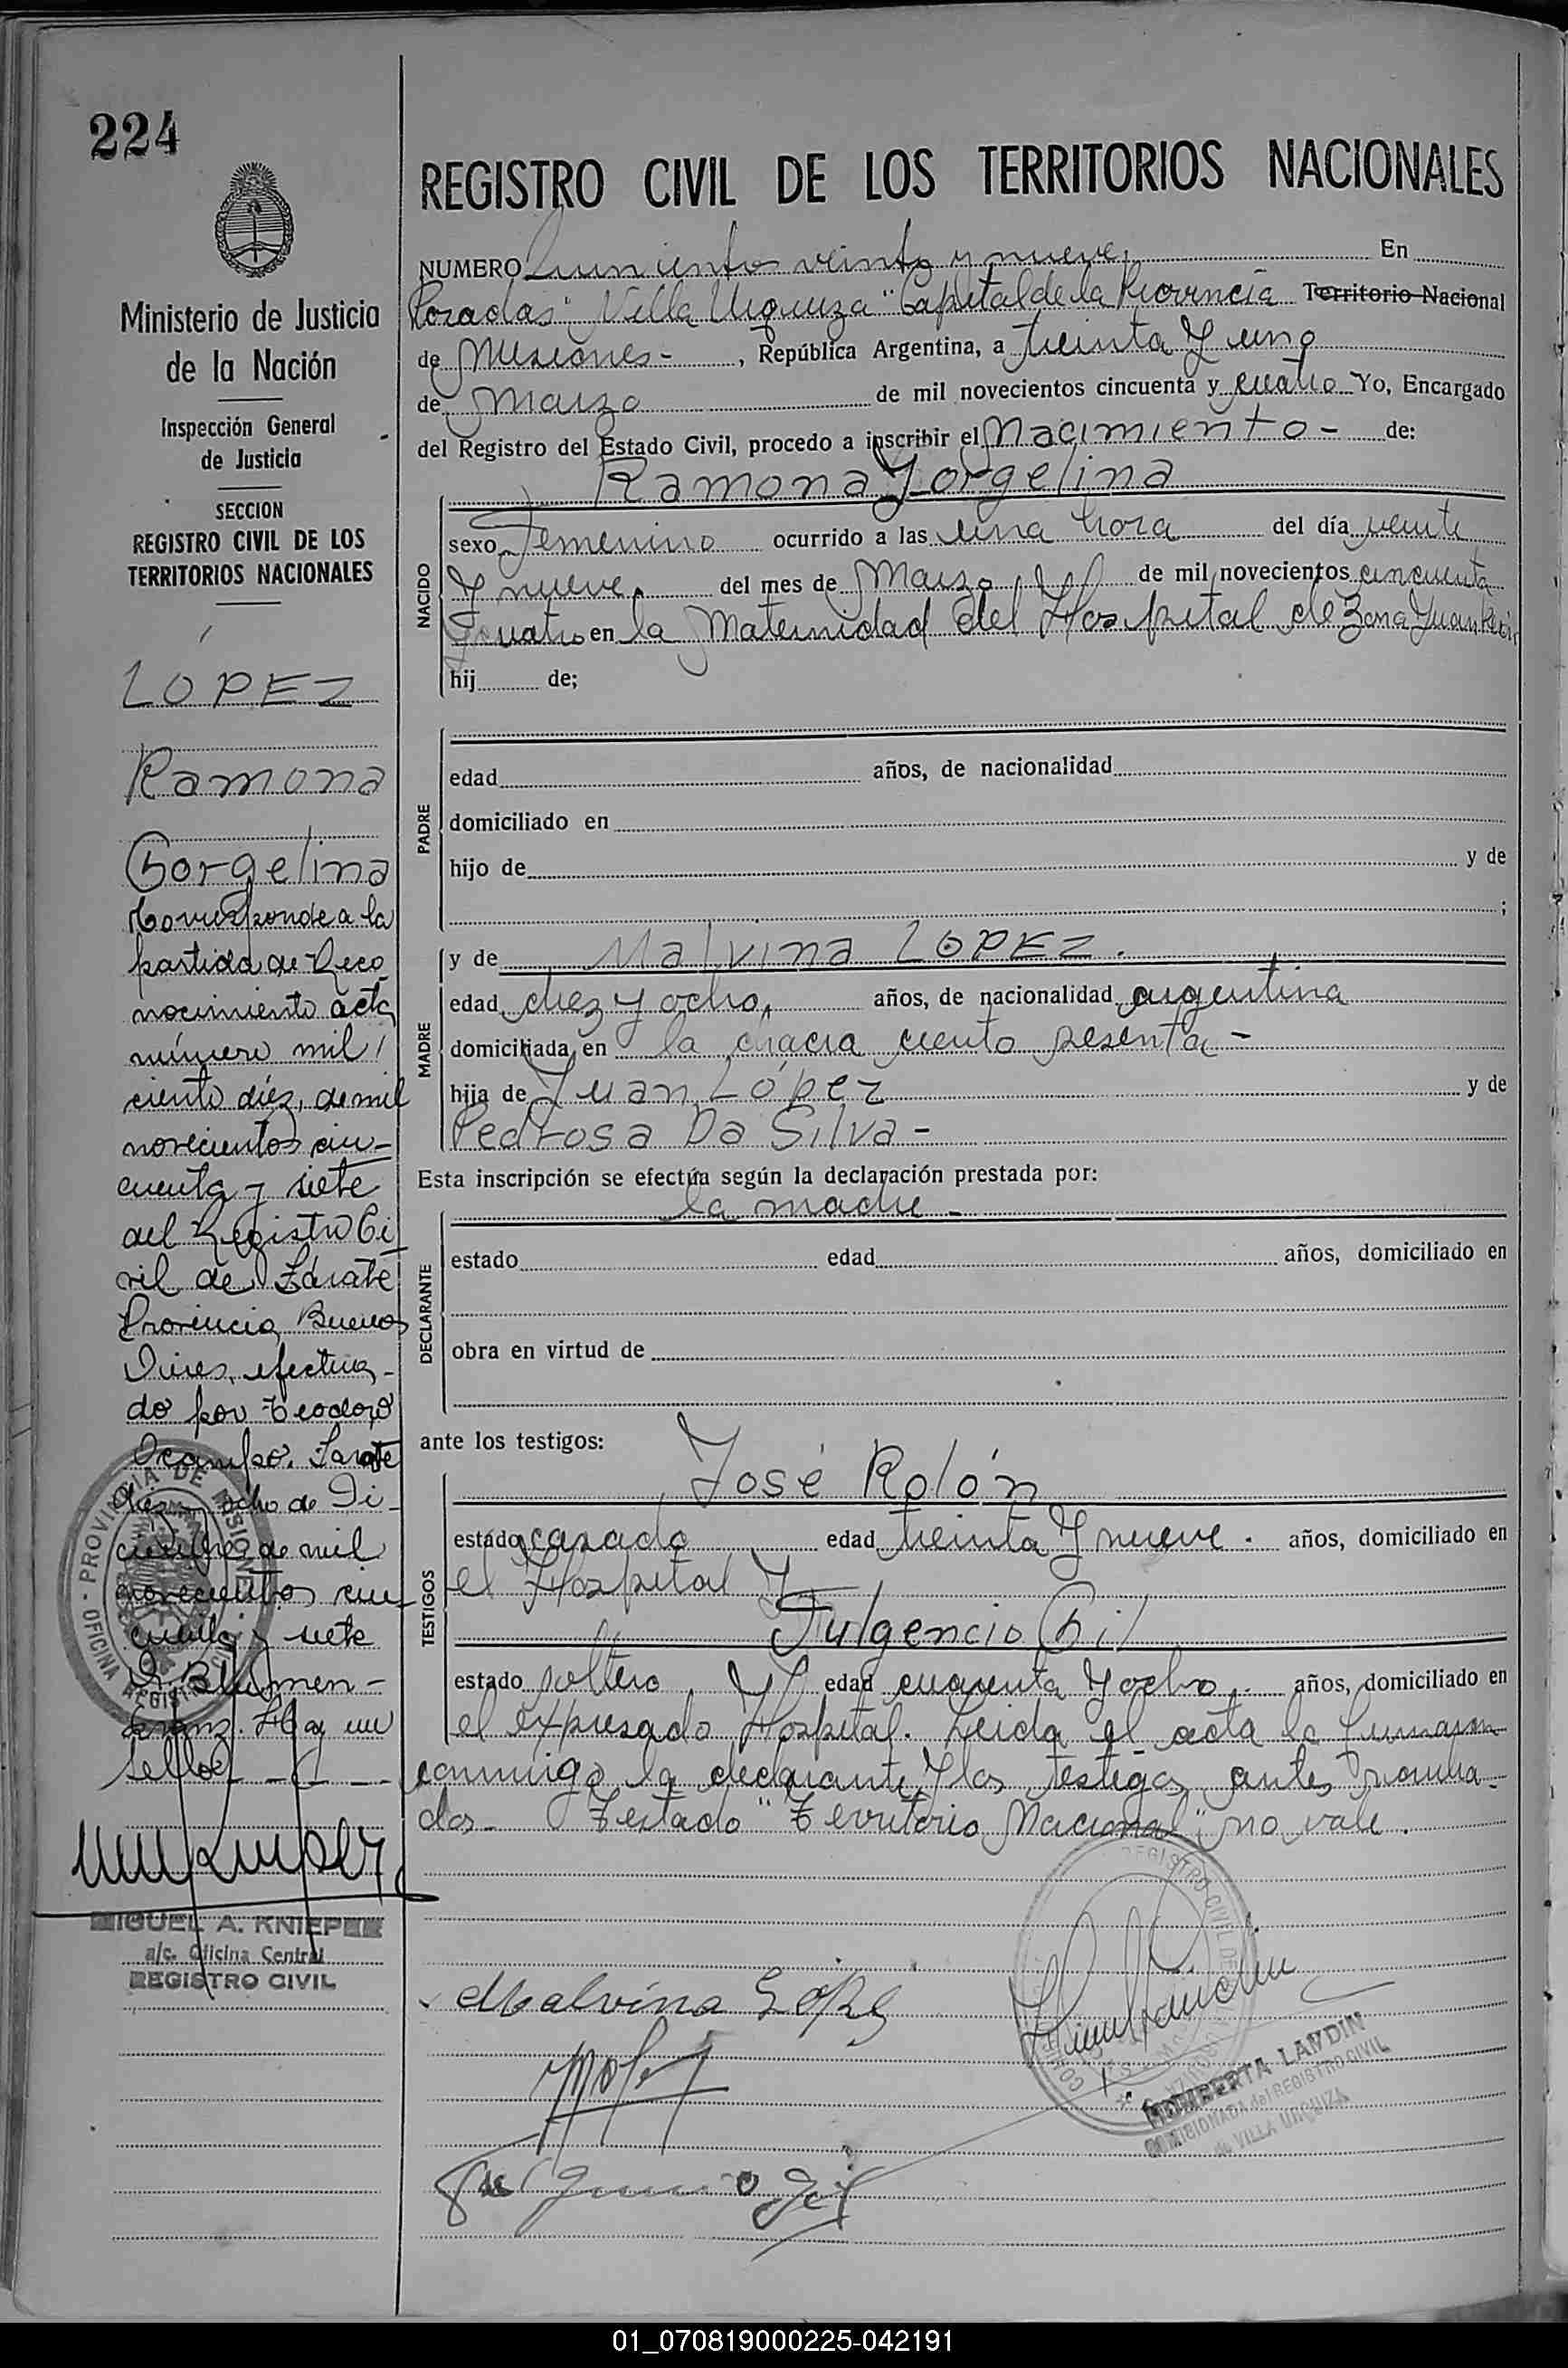 224
Ministerio de Justicia
de la Nación
Inspección General
de Justicia
SECCION
REGISTRO CIVIL DE LOS
TERRITORIOS NACIONALES
LOPEZ
Ramona
Gorgelina
Corresponde a la
partida de Reco
nocimiento acta
número mil
ciento diez, de mil
novecientos cin-
cuenta y siete
del Registro Ci
vil de Zárate
Provincia Buenos
Aires, efectua-
do por Teodoro
Ocampo. Zarate
diez y ocho de Di-
ciembre de mil
novecientos cin
cuenta y siete
Hay un
sello
MIGUEL A. KNIEPER
a/c. Oficina Central
REGISTRO CIVIL
REGISTRO CIVIL DE LOS TERRITORIOS NACIONALES
NUMERO veinte y nueve. En
Posadas "Villa Urquiza" Capital de la Provincia Territorio Nacional
de Misiones - , República Argentina, a treinta y uno
de Marzo de mil novecientos cincuenta y cuatro Yo, Encargado
del Registro del Estado Civil, procedo a inscribir el Nacimiento - de:
Ramona Jorgelina
NACIDO
sexo Femenino ocurrido a las una hora del día veinte
y nueve. del mes de Marzo de mil novecientos cincuenta
y cuatro en la Maternidad del Hospital de Zona Juan
hij de;
PADRE
edad años, de nacionalidad
domiciliado en
hijo de y de
;
MADRE
y de Malvina LOPEZ.
edad diez y ocho, años, de nacionalidad argentina
domiciliada en la chacra ciento sesenta -
hija de Juan López y de
Pedrosa Da Silva -
Esta inscripción se efectúa según la declaración prestada por:
la madre -
DECLARANTE
estado edad años, domiciliado en
obra en virtud de
ante los testigos:
José Rolón
TESTIGOS
estado casado edad treinta y nueve. años, domiciliado en
el Hospital y
Fulgencio Gil
estado soltero edad cuarenta y ocho. años, domiciliado en
el expresado Hospital. Leida el acta la firmaron
conmigo la declarante y los testigos antes nombra-
dos - Testado "Territorio Nacional" no vale.
Malvina López
Gil
HOMBERTA LANDIN
COMISIONADA del REGISTRO CIVIL
de VILLA URQUIZA
01_070819000225-042191